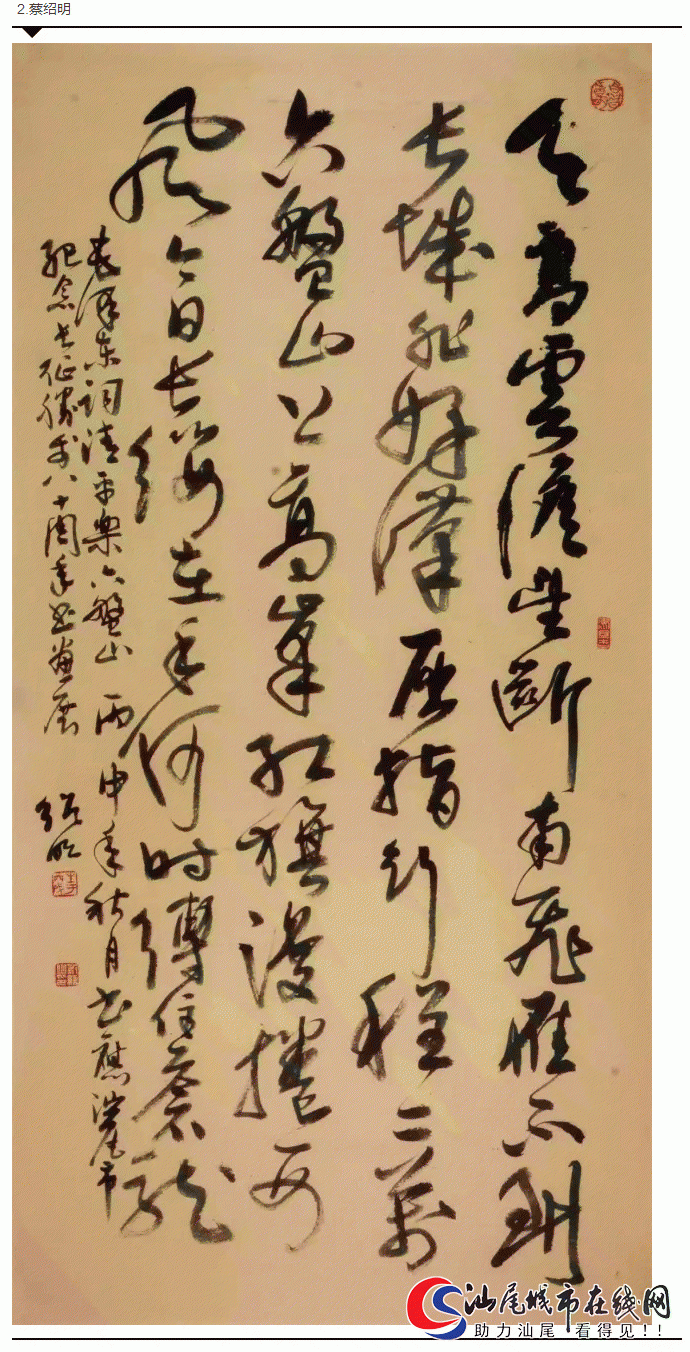 2.蔡绍明
天高雲澹望斷南飛雁不到
长城非好漢屈指行程二萬
六盤山上高峯红旗漫捲西
風今日长缨在手何时縛住蒼龍
毛泽东词清平樂六盤山 丙申年秋月书應汕尾市
纪念长征胜利八十周年书畫展 绍明
汕尾城市在线网
助力汕尾 看得见!!